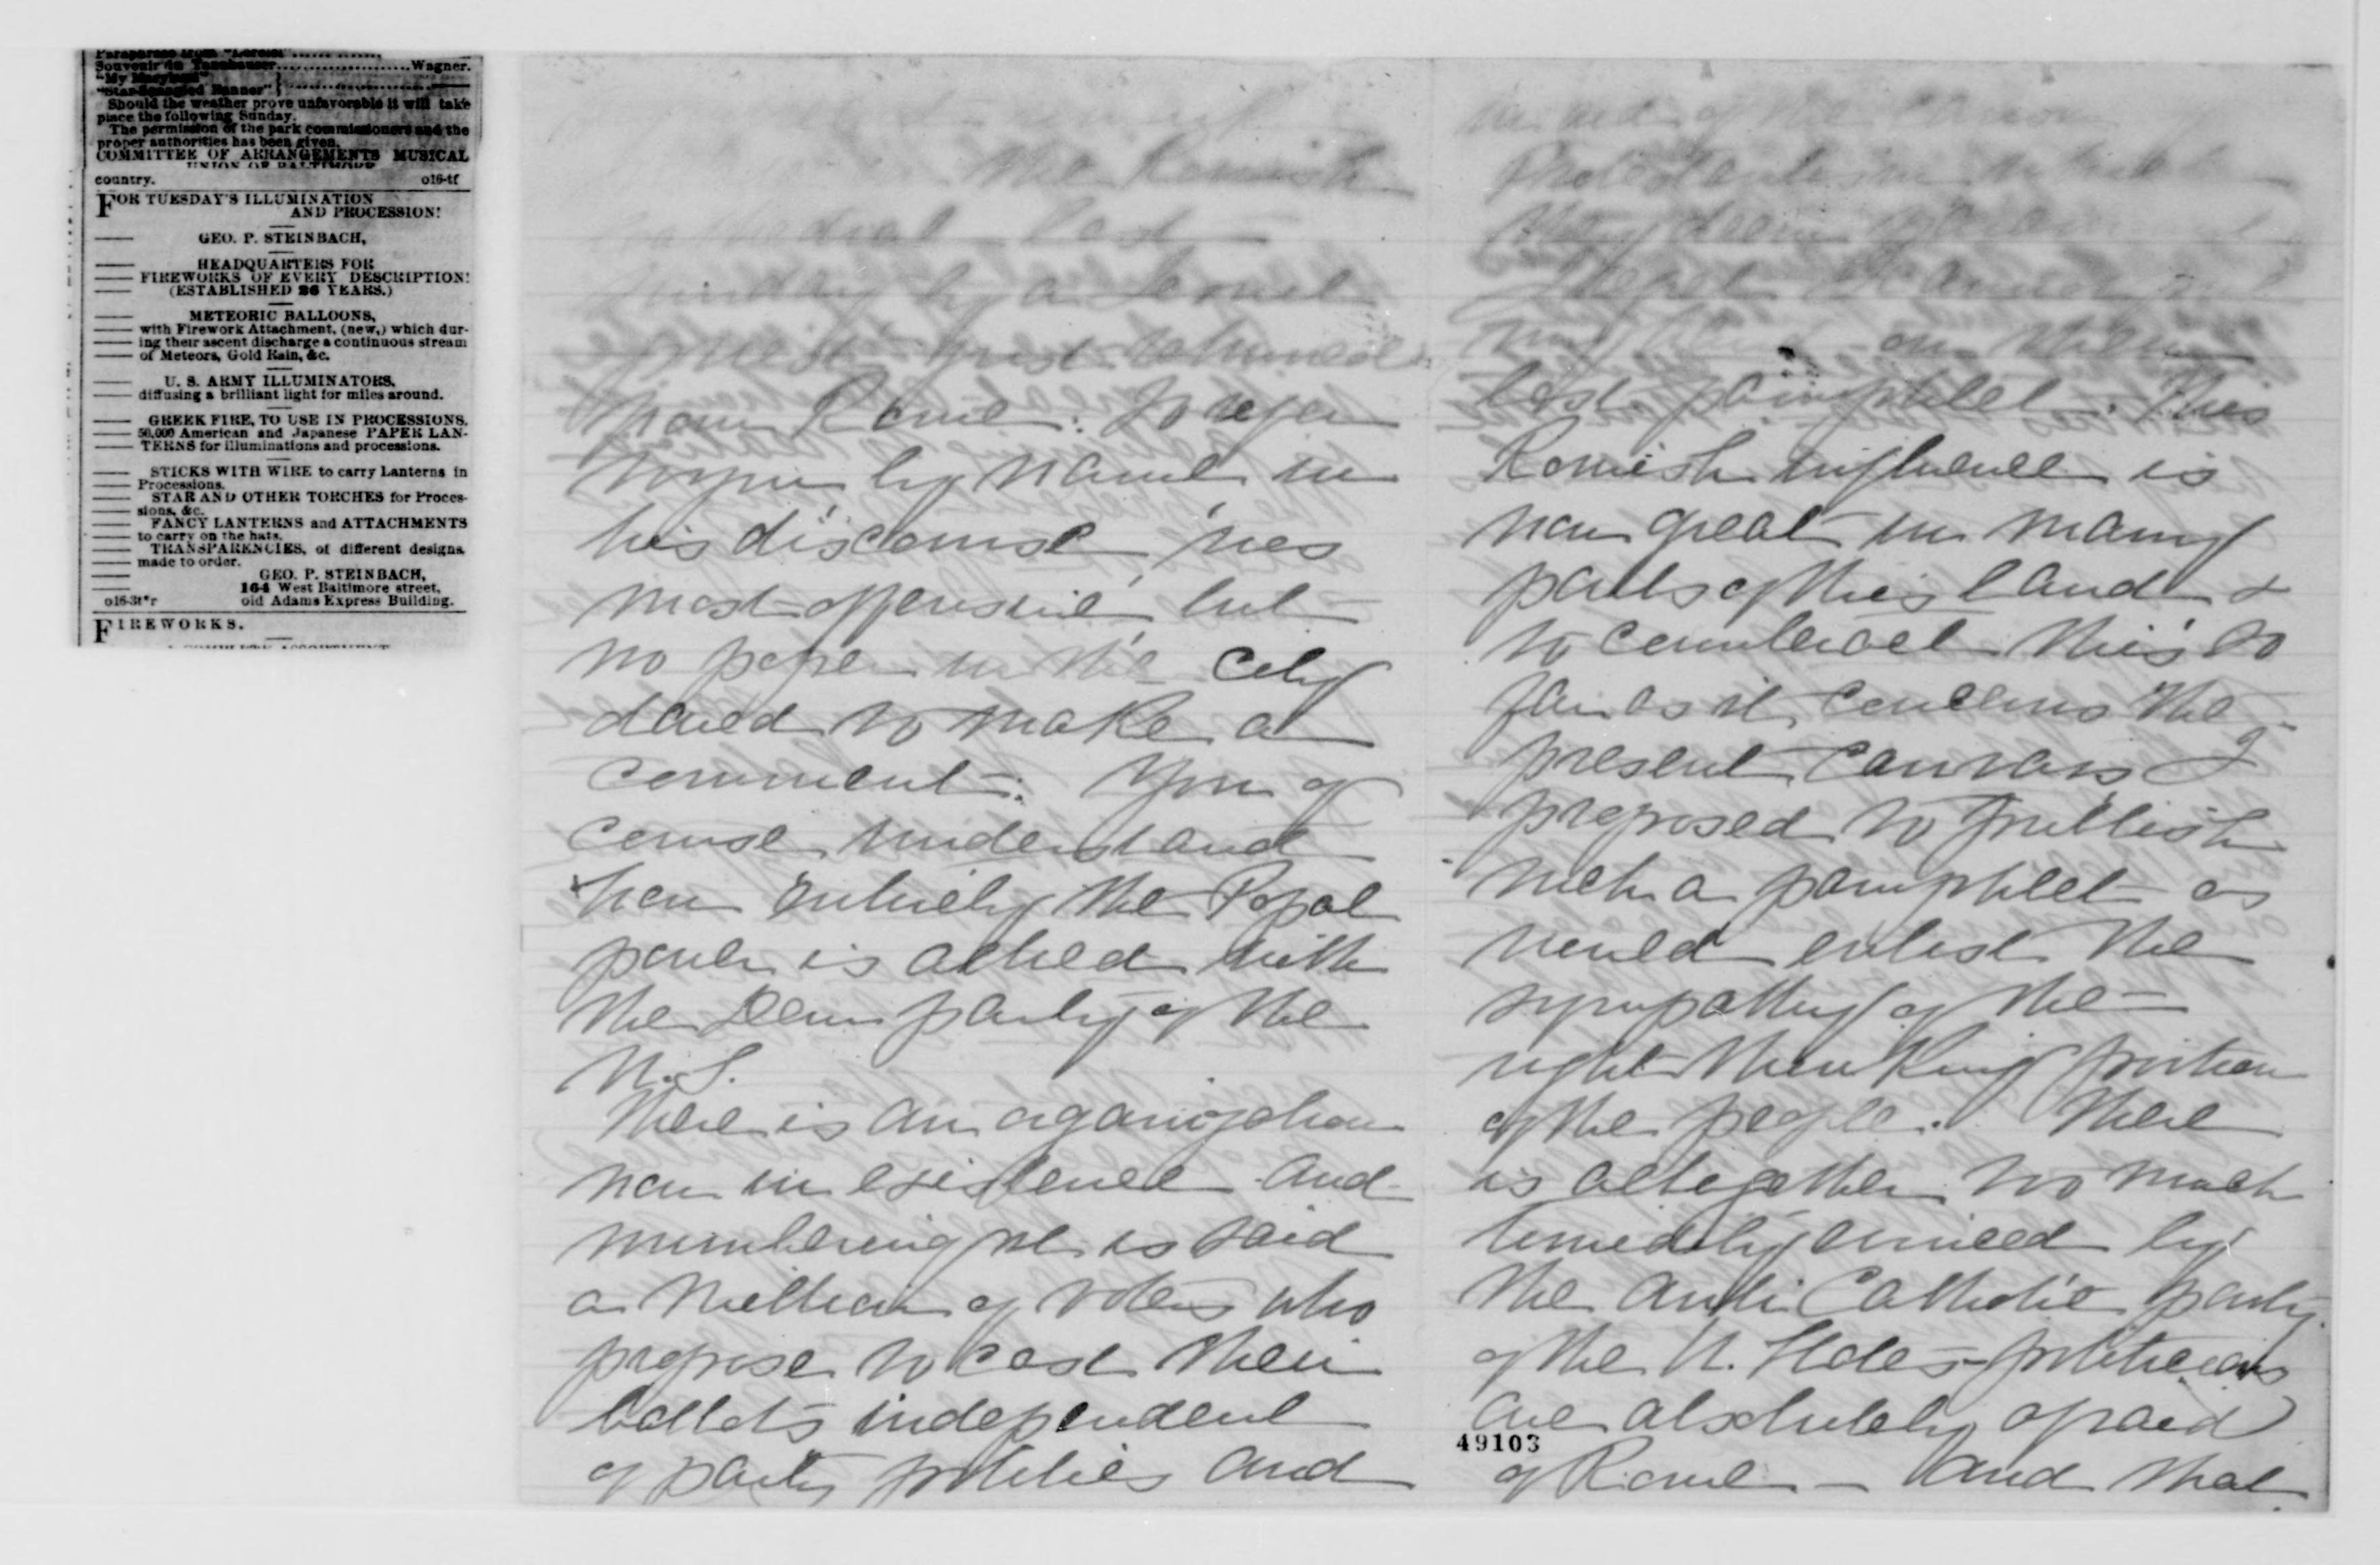 Souvenir de Tannhauser....................Wagner.
"My Maryland"
"Star-Spangled Banner"
Should the weather prove unfavorable it will take
place the following Sunday.
The permission of the park commissioners and the
proper authorities has been given.
COMMITTEE OF ARRANGEMENTS MUSICAL
UNION OF BALTIMORE
country. o16-tf
FOR TUESDAY'S ILLUMINATION
AND PROCESSION!
GEO. P. STEINBACH,
HEADQUARTERS FOR
FIREWORKS OF EVERY DESCRIPTION!
(ESTABLISHED 26 YEARS.)
METEORIC BALLOONS,
with Firework Attachment, (new,) which dur-
ing their ascent discharge a continuous stream
of Meteors, Gold Rain, &c.
U. S. ARMY ILLUMINATORS,
diffusing a brilliant light for miles around.
GREEK FIRE, TO USE IN PROCESSIONS.
50,000 American and Japanese PAPER LAN-
TERNS for illuminations and processions.
STICKS WITH WIRE to carry Lanterns in
Processions.
STAR AND OTHER TORCHES for Proces-
sions, &c.
FANCY LANTERNS and ATTACHMENTS
to carry on the hats.
TRANSPARENCIES, of different designs
made to order.
GEO. P. STEINBACH,
164 West Baltimore street,
o16-3t*r old Adams Express Building.
FIREWORKS.
the Romish
last
Sunday by a
priest just returned
from Rome. To refer
to you by name in
his discourse, was
most offensive, but
no paper in the City
dared to make a
comment. You of
course understand
how entirely the Papal
power is allied with
the Dem party of the
U.S.
There is an organization
now in existence and
numbering it is said
a Million of voters who
propose to cast their
ballots independent
of party politics and
the
Protestantism
on
last pamphlet. This
Romish influence is
now great in many
parts of this land &
to counteract this so
far as it concerns the
present Canvass I
proposed to publish
such a pamphlet as
would enlist the
sympathy of the
right thinking portion
of the people. There
is altogether too much
timidity evinced by
the Anti Catholic party
of the U. States - politicians
are absolutely afraid
49103
of Rome - and that